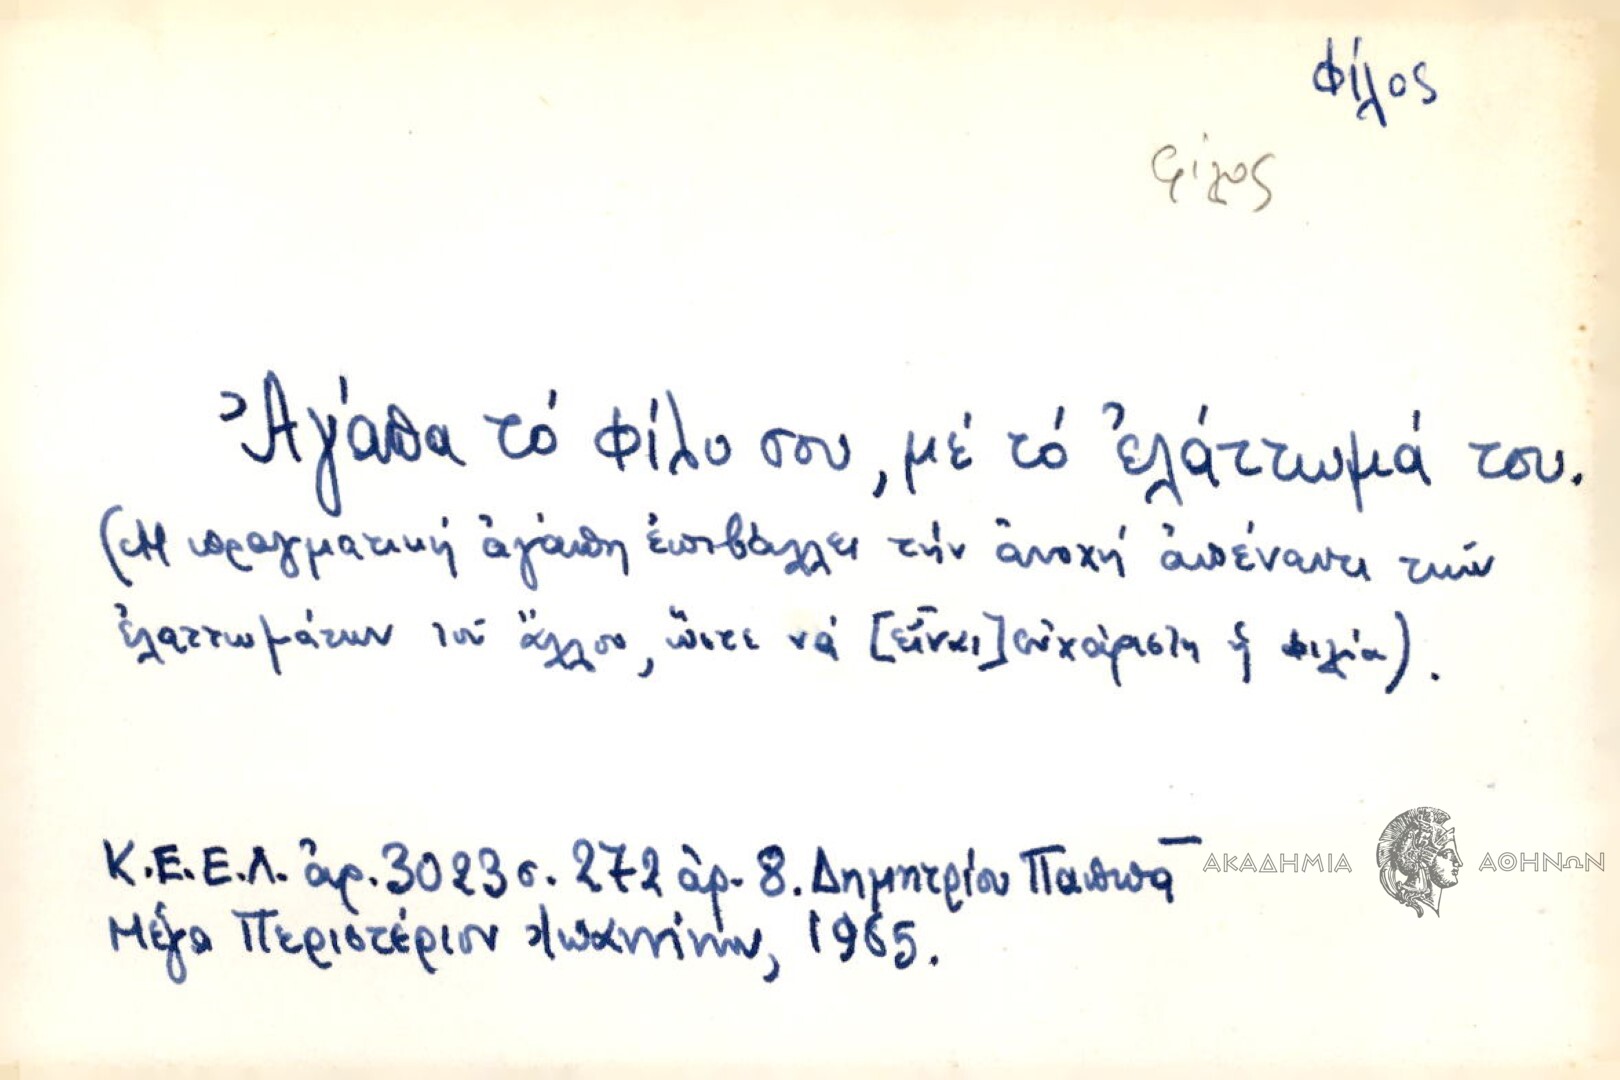 Φίλος
φίλος
Ἀγάπα τό φίλο σου, μέ τό ἐλάττωμά του.
(Ἡ πραγματική ἀγάπη ἐπιβάλλει τήν ἀνοχή ἀπέναντι τῶν
ἐλαττωμάτων τοῦ ἄλλου, ὥστε νά [εἶναι] εὐχάριστη ἡ φιλία).
Κ.Ε.Ε.Λ. ἀρ. 3023 σ. 272 ἀρ. 8. Δημητρίου Παππᾶ
Μέγα Περιστέριον Ἰωαννίνων, 1965.
ΑΚΑΔΗΜΙΑ ΑΘΗΝΩΝ